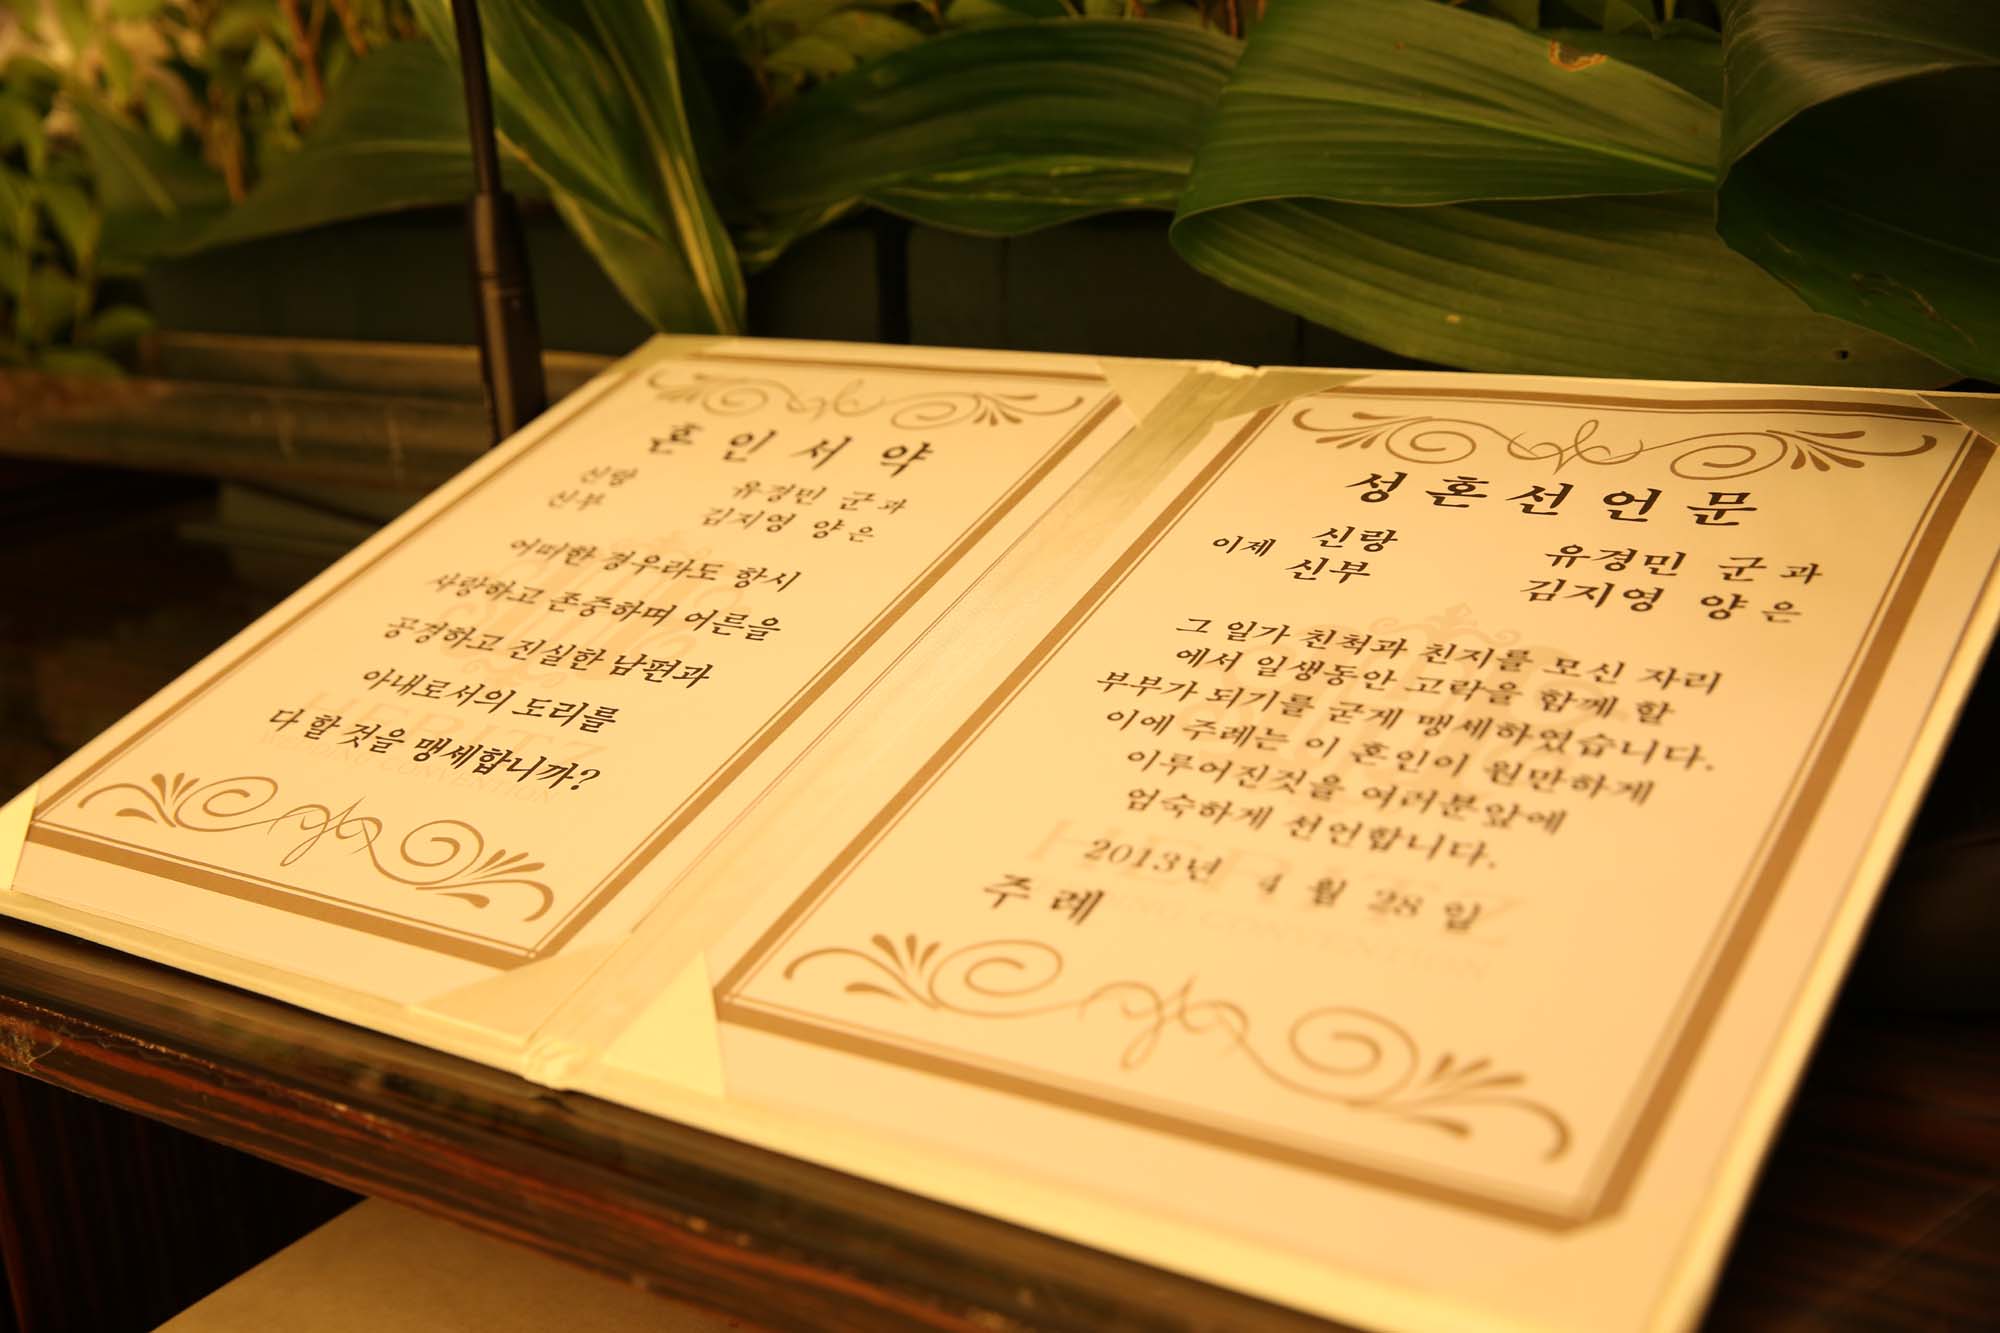 혼인서약
신랑 유경민 군과
신부 김지영 양은
어떠한 경우라도 항시
사랑하고 존중하며 어른을
공경하고 진실한 남편과
아내로서의 도리를
다 할 것을 맹세합니까?
성혼선언문
이제 신랑 유경민 군과
신부 김지영 양은
그 일가 친척과 친지를 모신 자리
에서 일생동안 고락을 함께 할
부부가 되기를 굳게 맹세하였습니다.
이에 주례는 이 혼인이 원만하게
이루어진것을 여러분앞에
엄숙하게 선언합니다.
2013년 4 월 28 일
주례